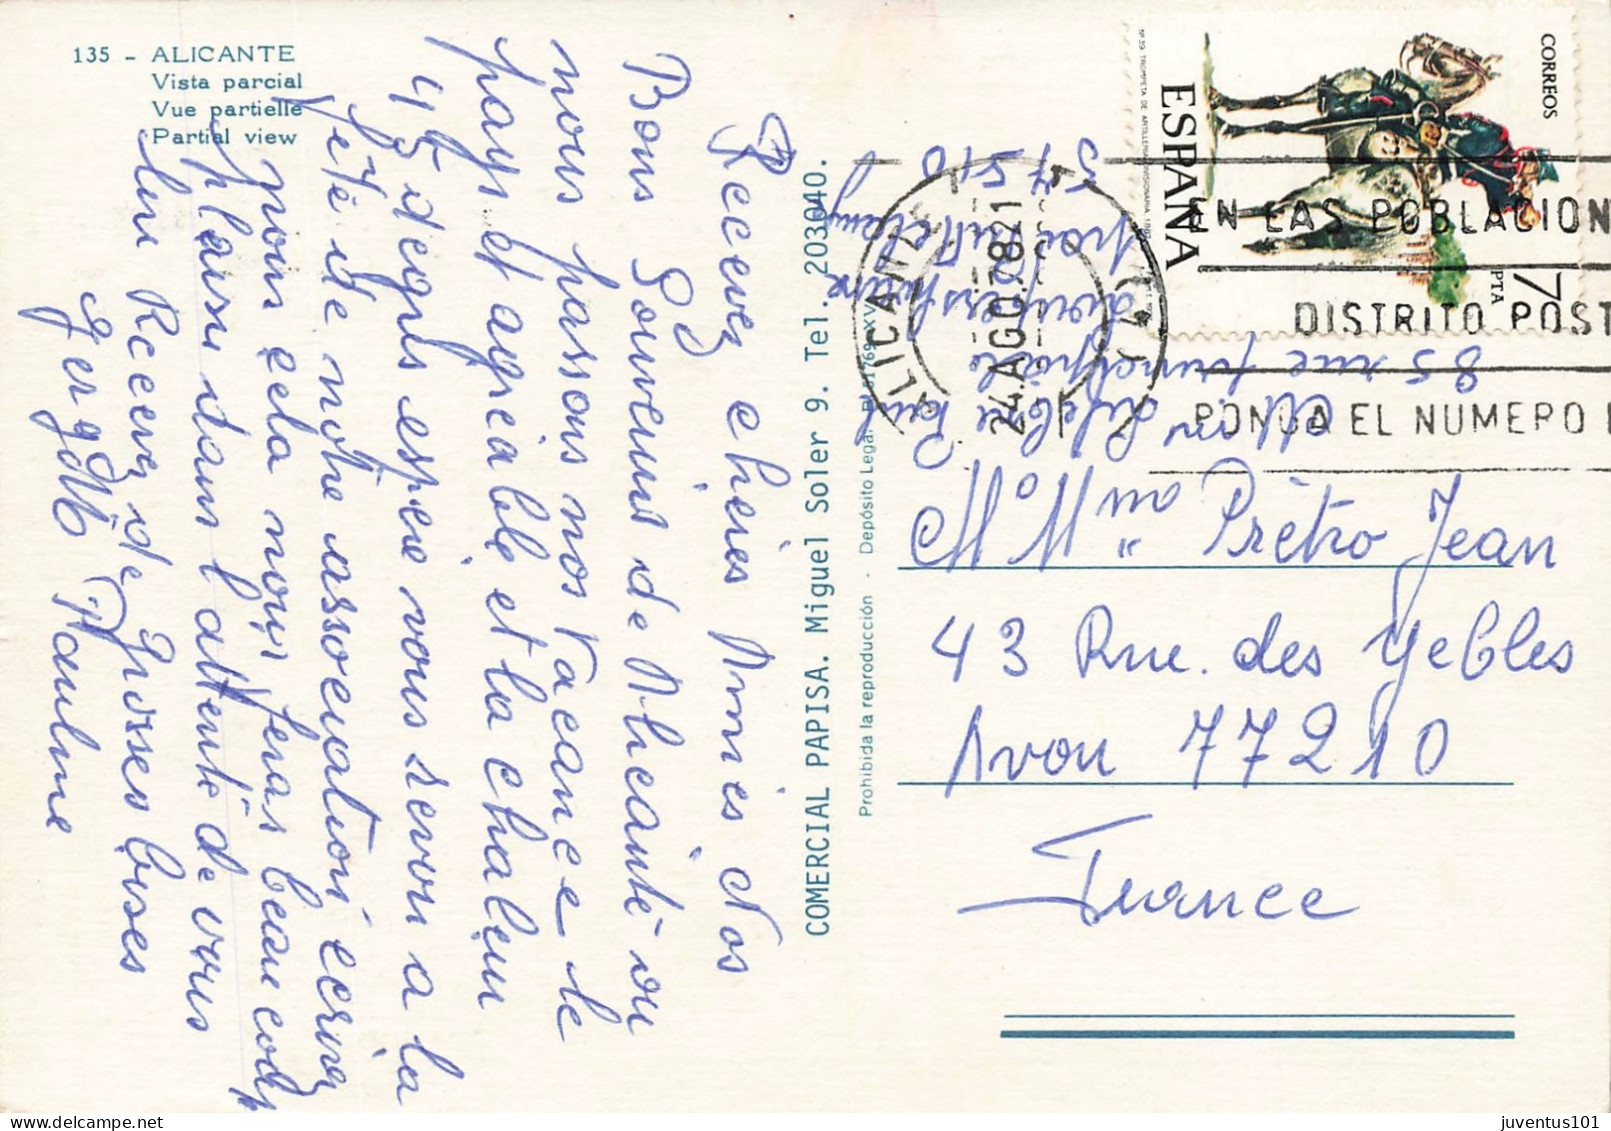 135 - ALICANTE
Vista parcial
Vue partielle
Partial view
Recevez chères Amies Nos
Bons Souvenirs de Alicante ou
nous passons nos Vacance le
pays et agréable et la chaleur
45 degrés espère vous servir a la
fête de notre association écrivez
nous cela nous feras beau coup
plaisir dans l'attente de vous
lire Recevez de Grosses bises
Paulme
COMERCIAL PAPISA. Miguel Soler 9. Tel. 203040.
Prohibida la reproducción - Depósito Legal
CORREOS
ESPAÑA
7 PTA
Nº 39 TROMPETA DE ARTILLERIA DIVISIONARIA
ALICANTE
24.AGO.78.21
EN LAS POBLACION
DISTRITO POST
PONGA EL NUMERO
85 rue
M. Mme Prétro Jean
43 Rue. des Yebles
Avon 77210
France
juventus101